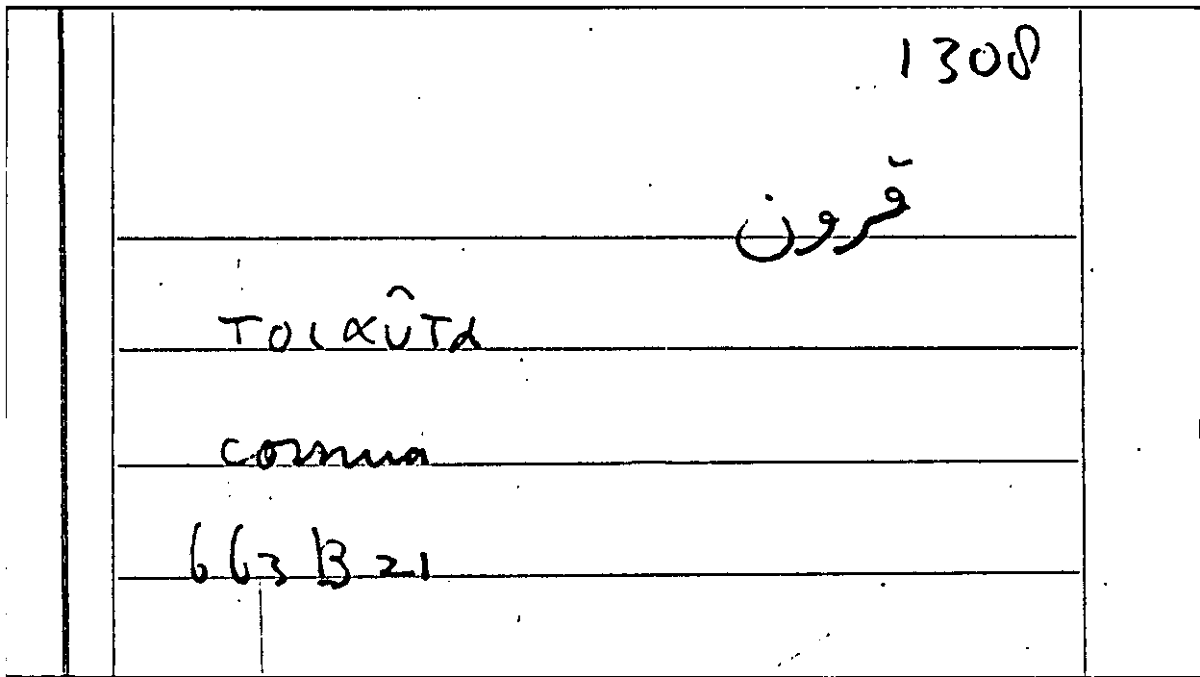 1308
قرون
τοιαῦτα
cornua
663 B 21